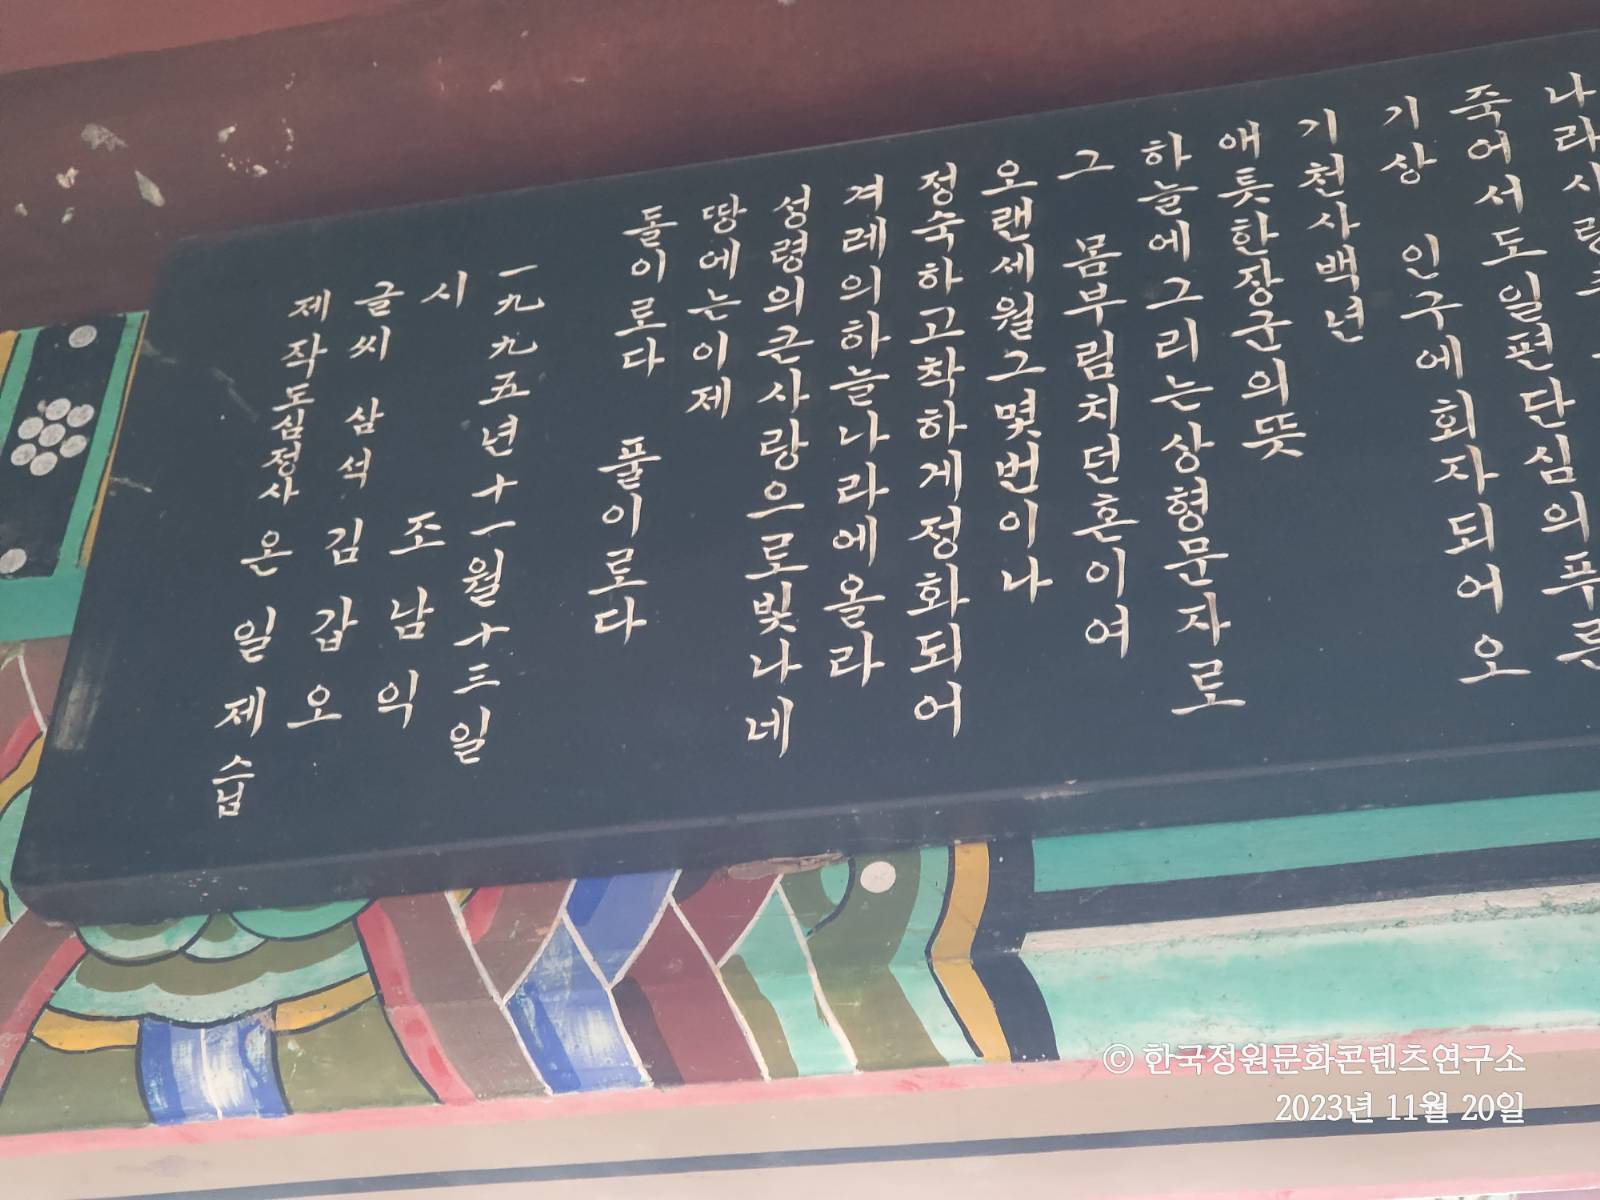 나라사랑
죽어서도일편단심의푸른
기상 인구에회자되어오
기천사백년
애틋한장군의뜻
하늘에그리는상형문자로
그 몸부림치던혼이여
오랜세월그몇번이나
정숙하고착하게정화되어
겨레의하늘나라에올라
성령의큰사랑으로빛나네
땅에는이제
돌이로다 풀이로다
一九九五년十一월十三일
시 조남익
글씨 삼석 김갑오
제작도심정사 온일제스님
© 한국정원문화콘텐츠연구소
2023년 11월 20일